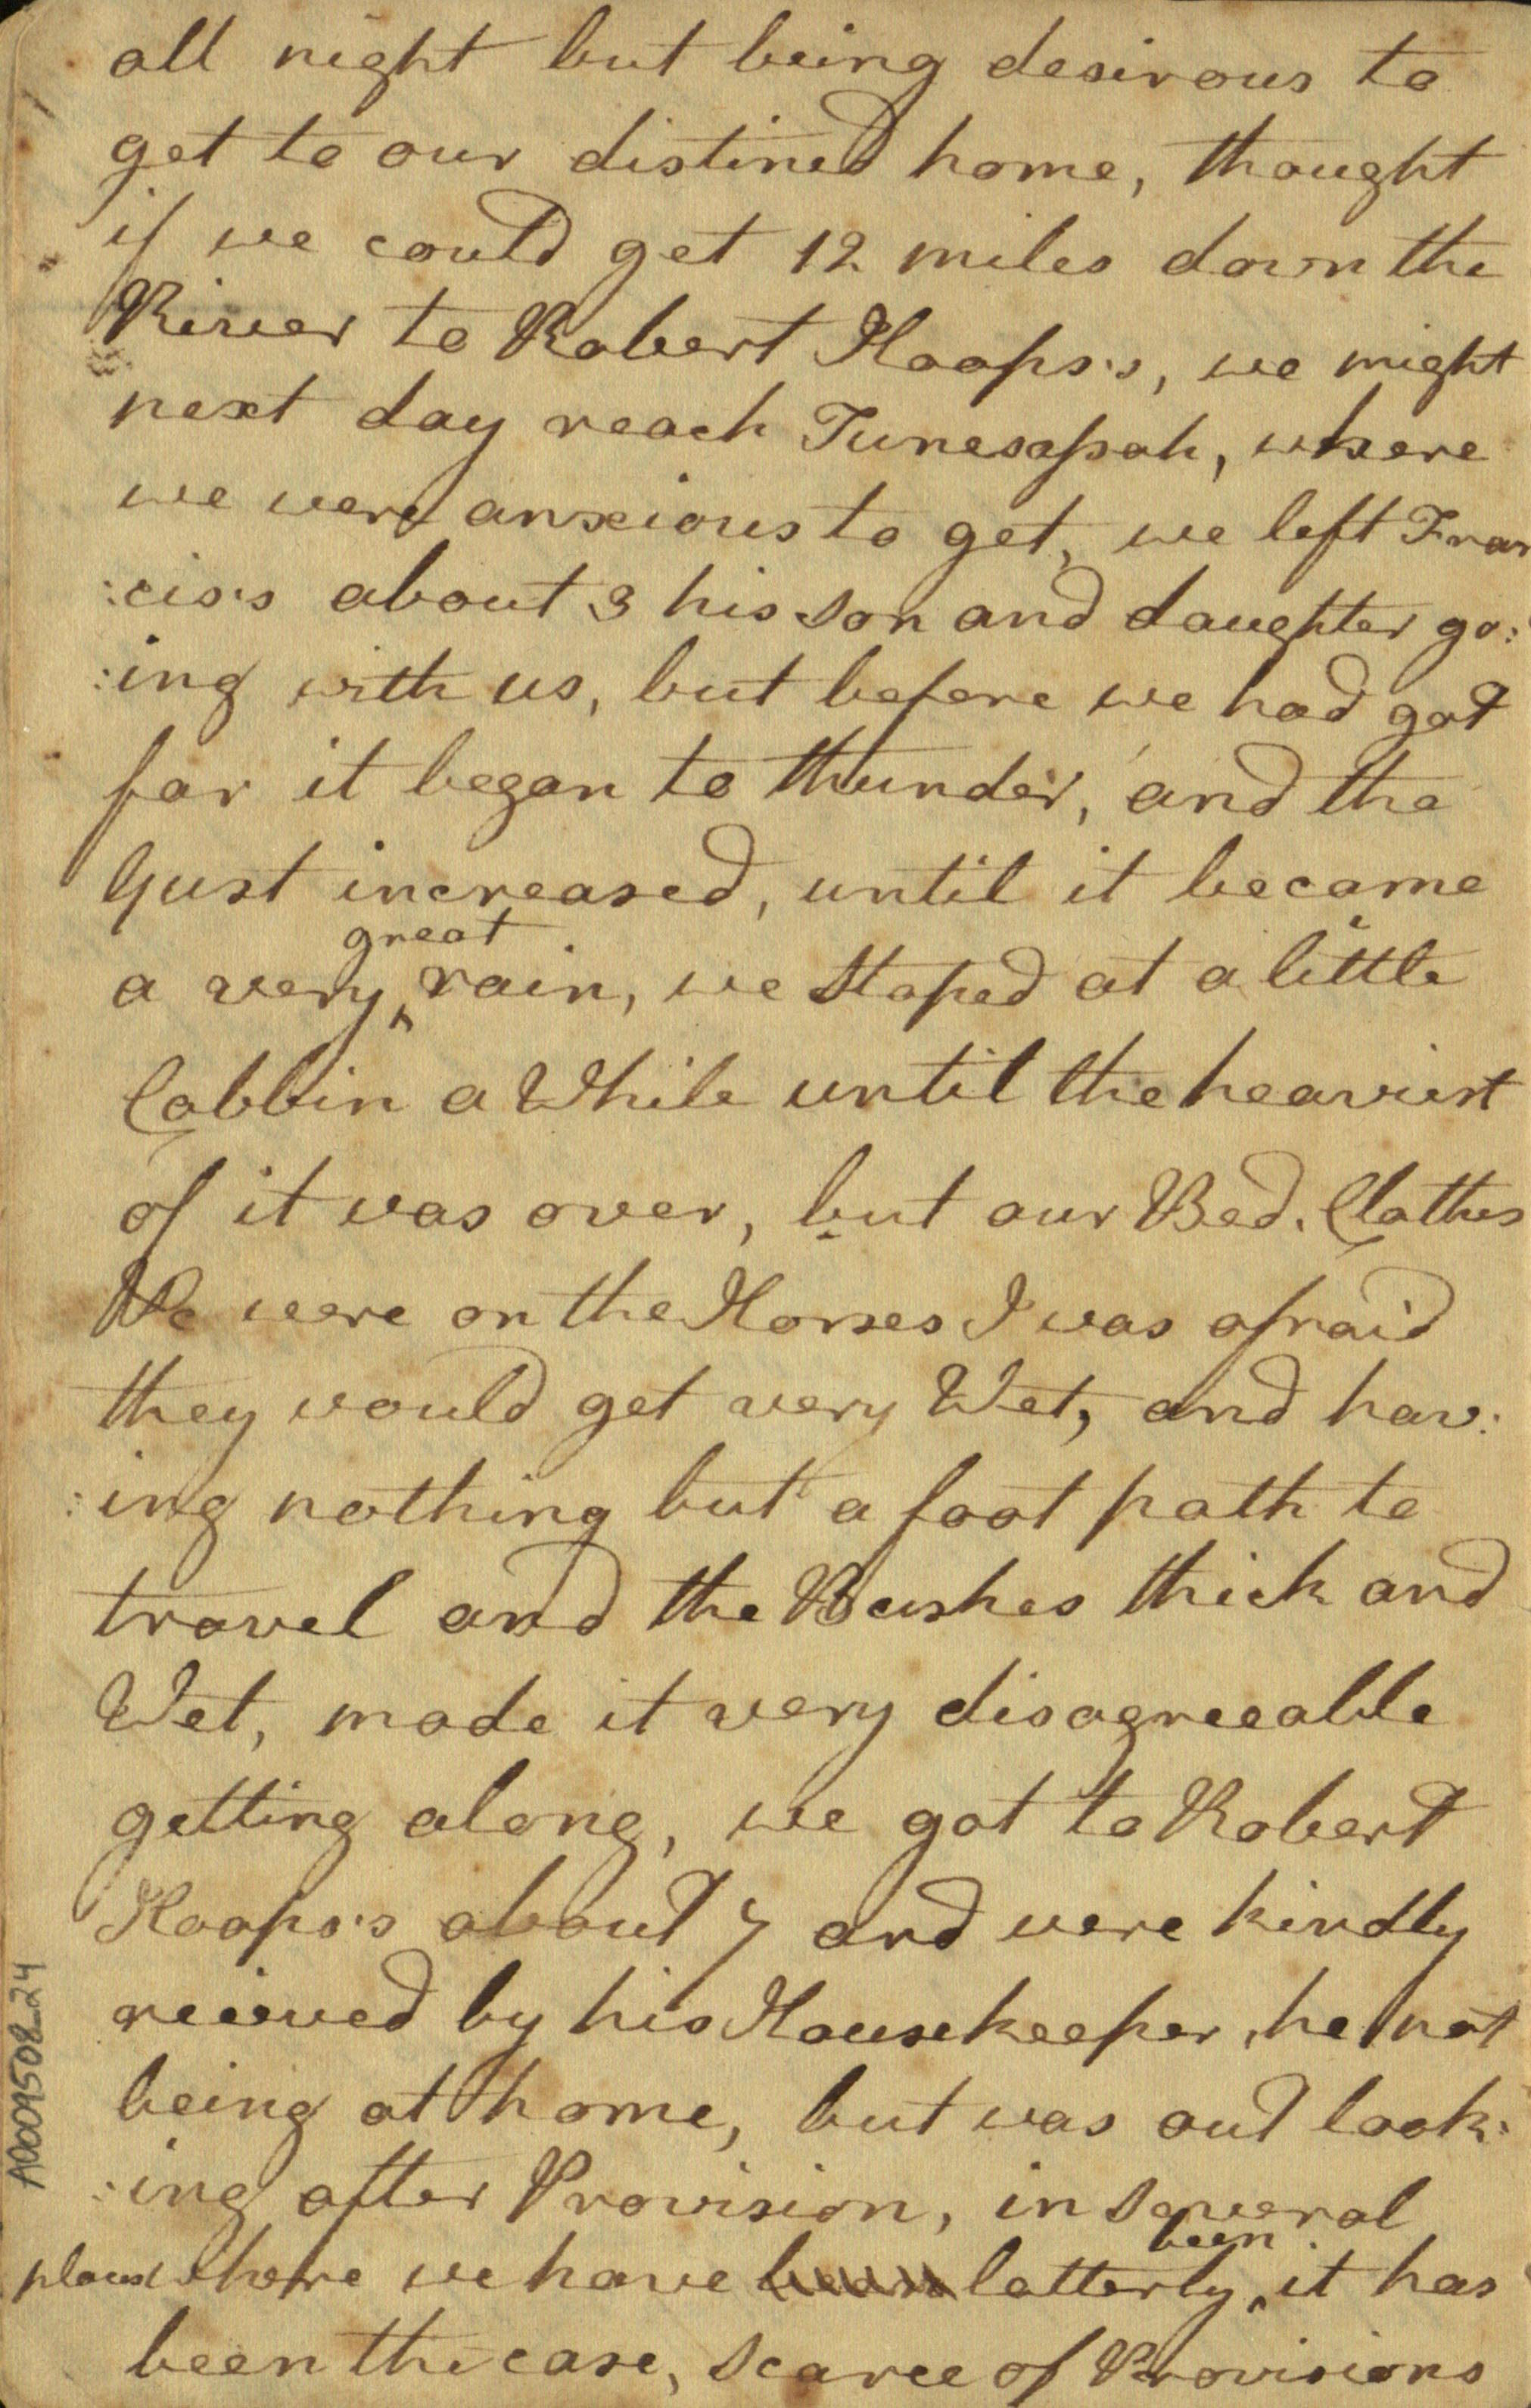 all night but being desirous to
get to our distined home, thought
if we could get 12 miles down the
River to Robert Hoops's, we might
next day reach Tunesapah, where
we were anxious to get, we left Fran
:cis's about 3 his son and daughter go:
:ing with us, but before we had got
far it began to thunder, and the
Gust increased, until it became
great
a very ^ rain, we Stoped at a little
Cabbin a While until the heaviest
of it was over, but our Bed. Clothes
&c were on the Horses I was afraid
they would get very Wet, and hav:
:ing nothing but a foot path to
travel and the Bushes thick and
Wet, made it very disagreeable
getting along, we got to Robert
Hoops's about 7 and were kindly
reieved by his Housekeeper, he not
being at home, but was out look:
:ing after Provision, in several
been
places where we have latterly ^ it has
been the case, scarce of Provisions
A0009508_24